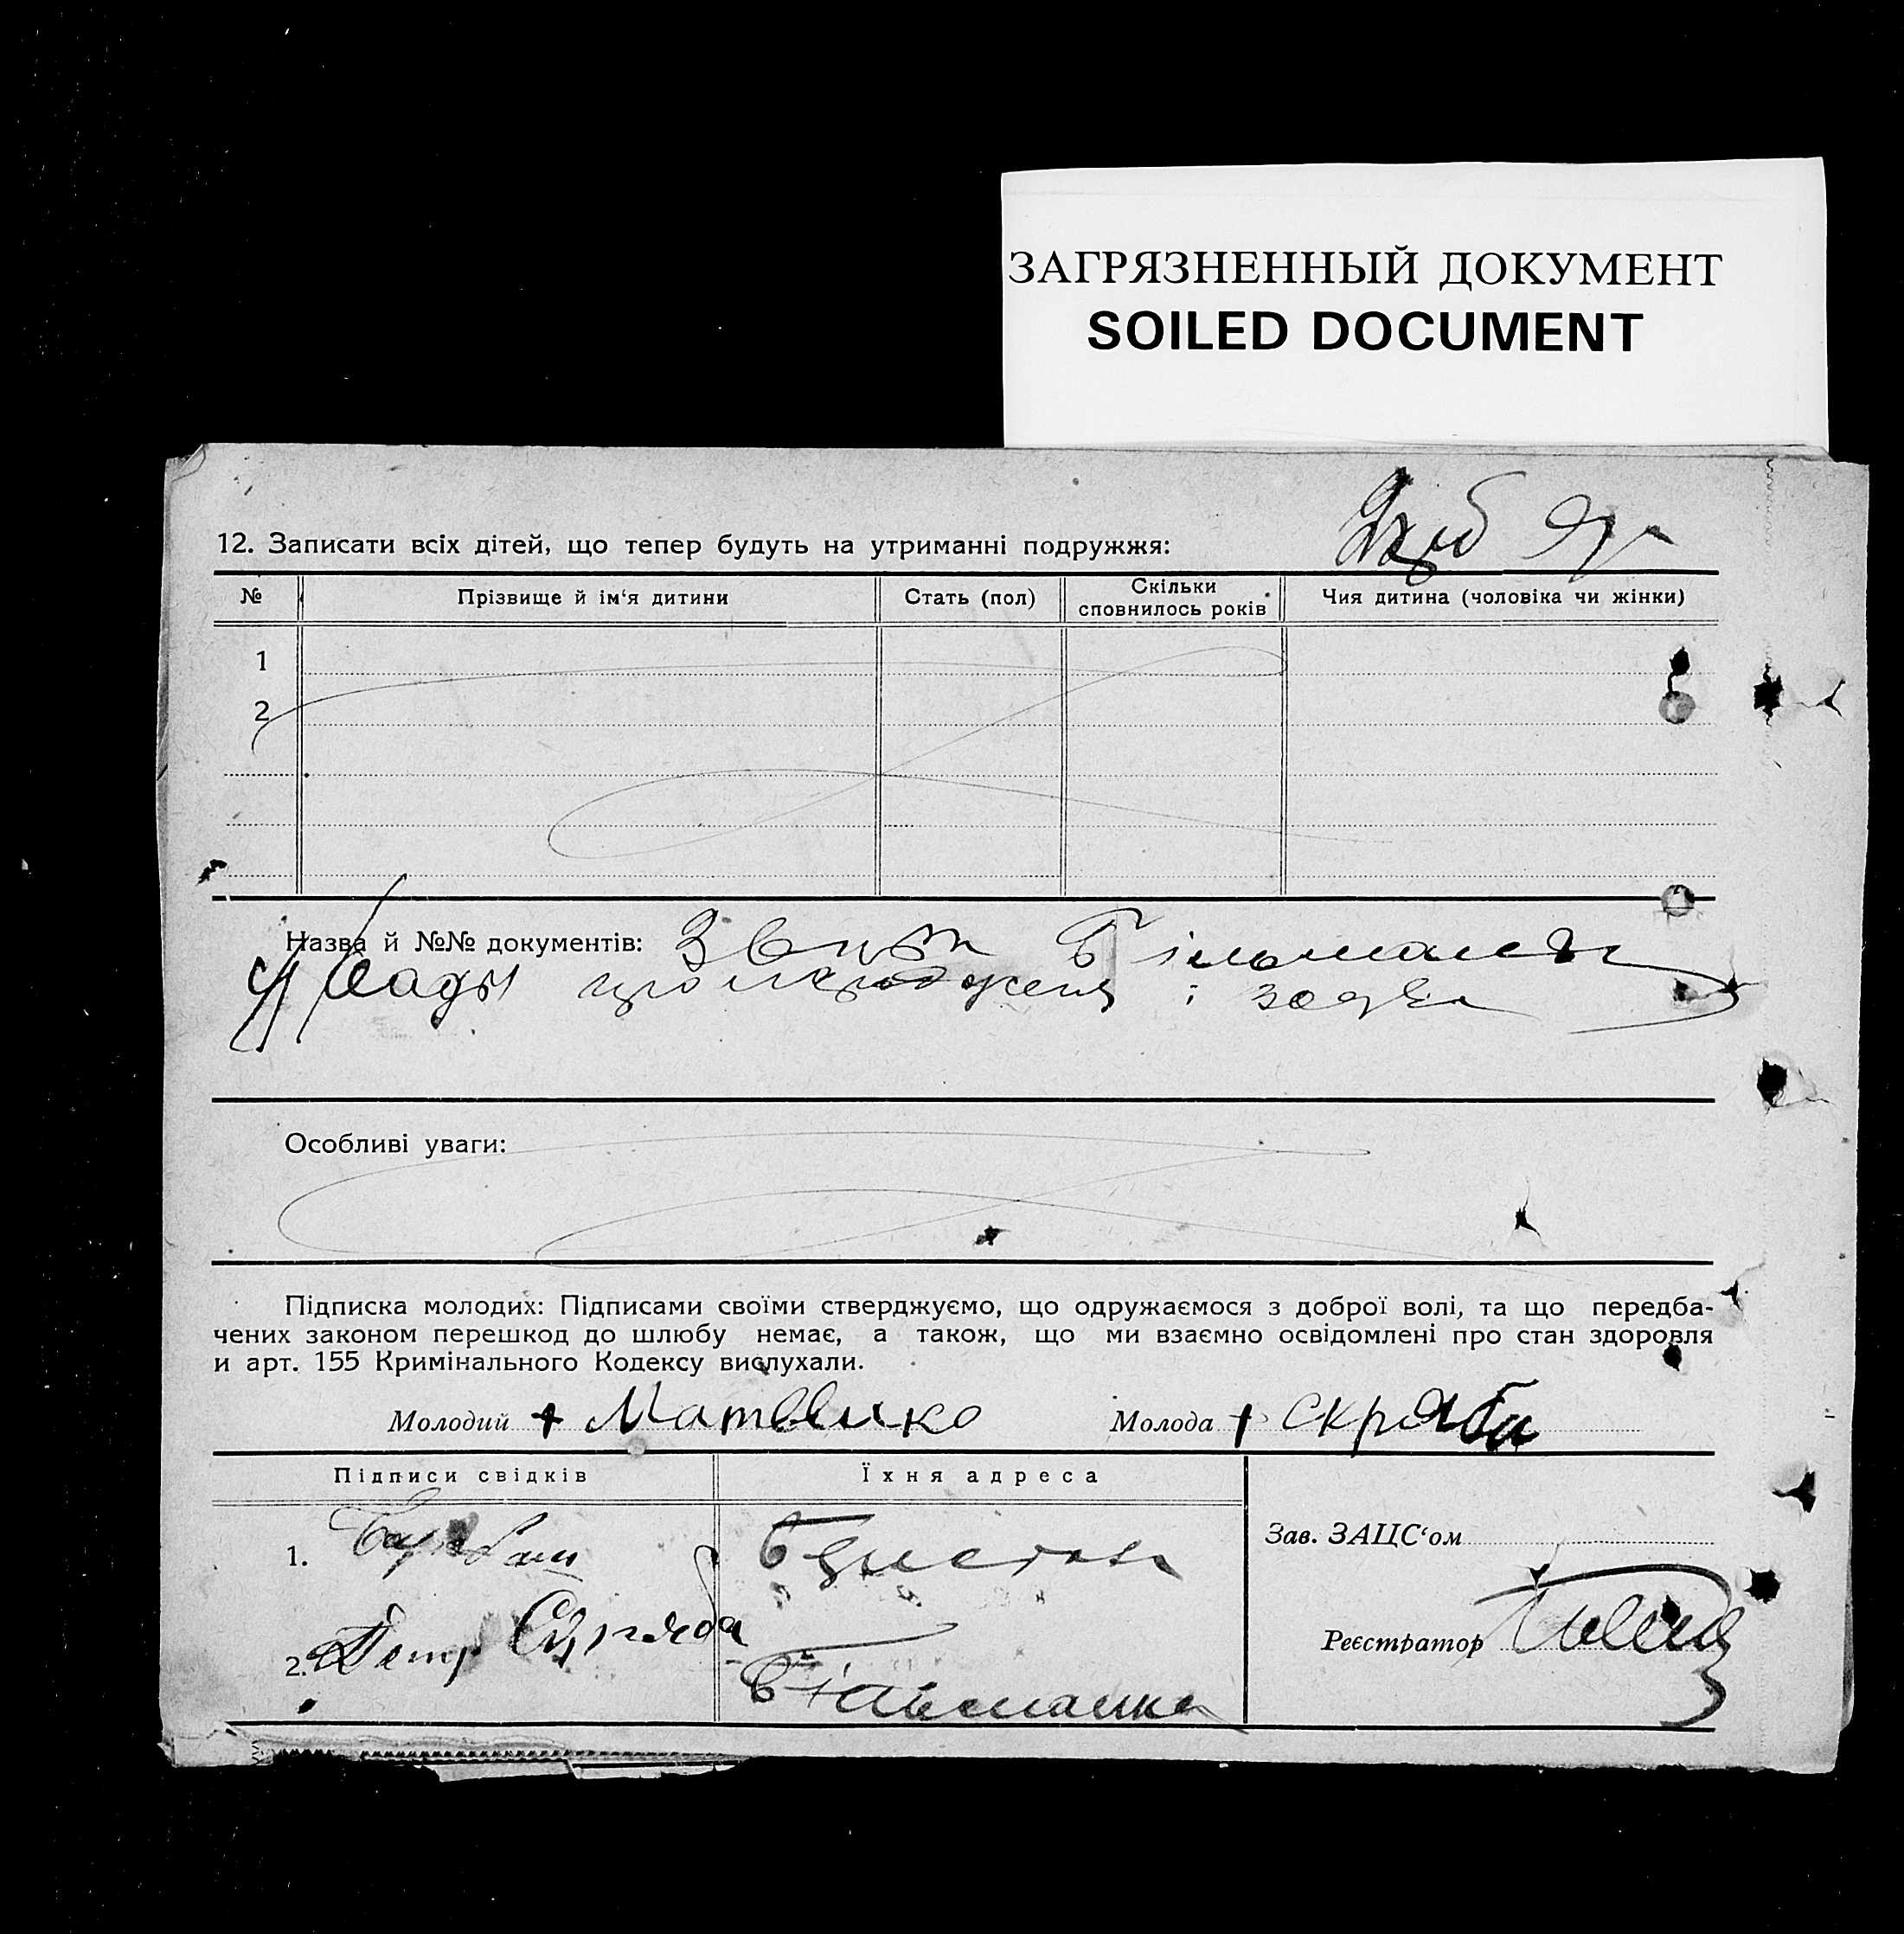 ЗАГРЯЗНЕННЫЙ ДОКУМЕНТ
SOILED DOCUMENT
12. Записати всіх дітей, що тепер будуть на утриманні подружжя:
№ Прізвище й ім‘я дитини Стать (пол) Скільки сповнилось років Чия дитина (чоловіка чи жінки)
1
2
Назва й №№ документів:
і
Особливі уваги:
Підписка молодих: Підписами своїми стверджуємо, що одружаємося з доброї волі, та що передба-
чених законом перешкод до шлюбу немає, а також, що ми взаємно освідомлені про стан здоровля
и арт. 155 Кримінального Кодексу вислухали.
Молодий + Матвеико Молода + Скряби
Підписи свідків Їхня адреса
Зав. ЗАЦС‘ом
1.
Реєстратор
2. Петр